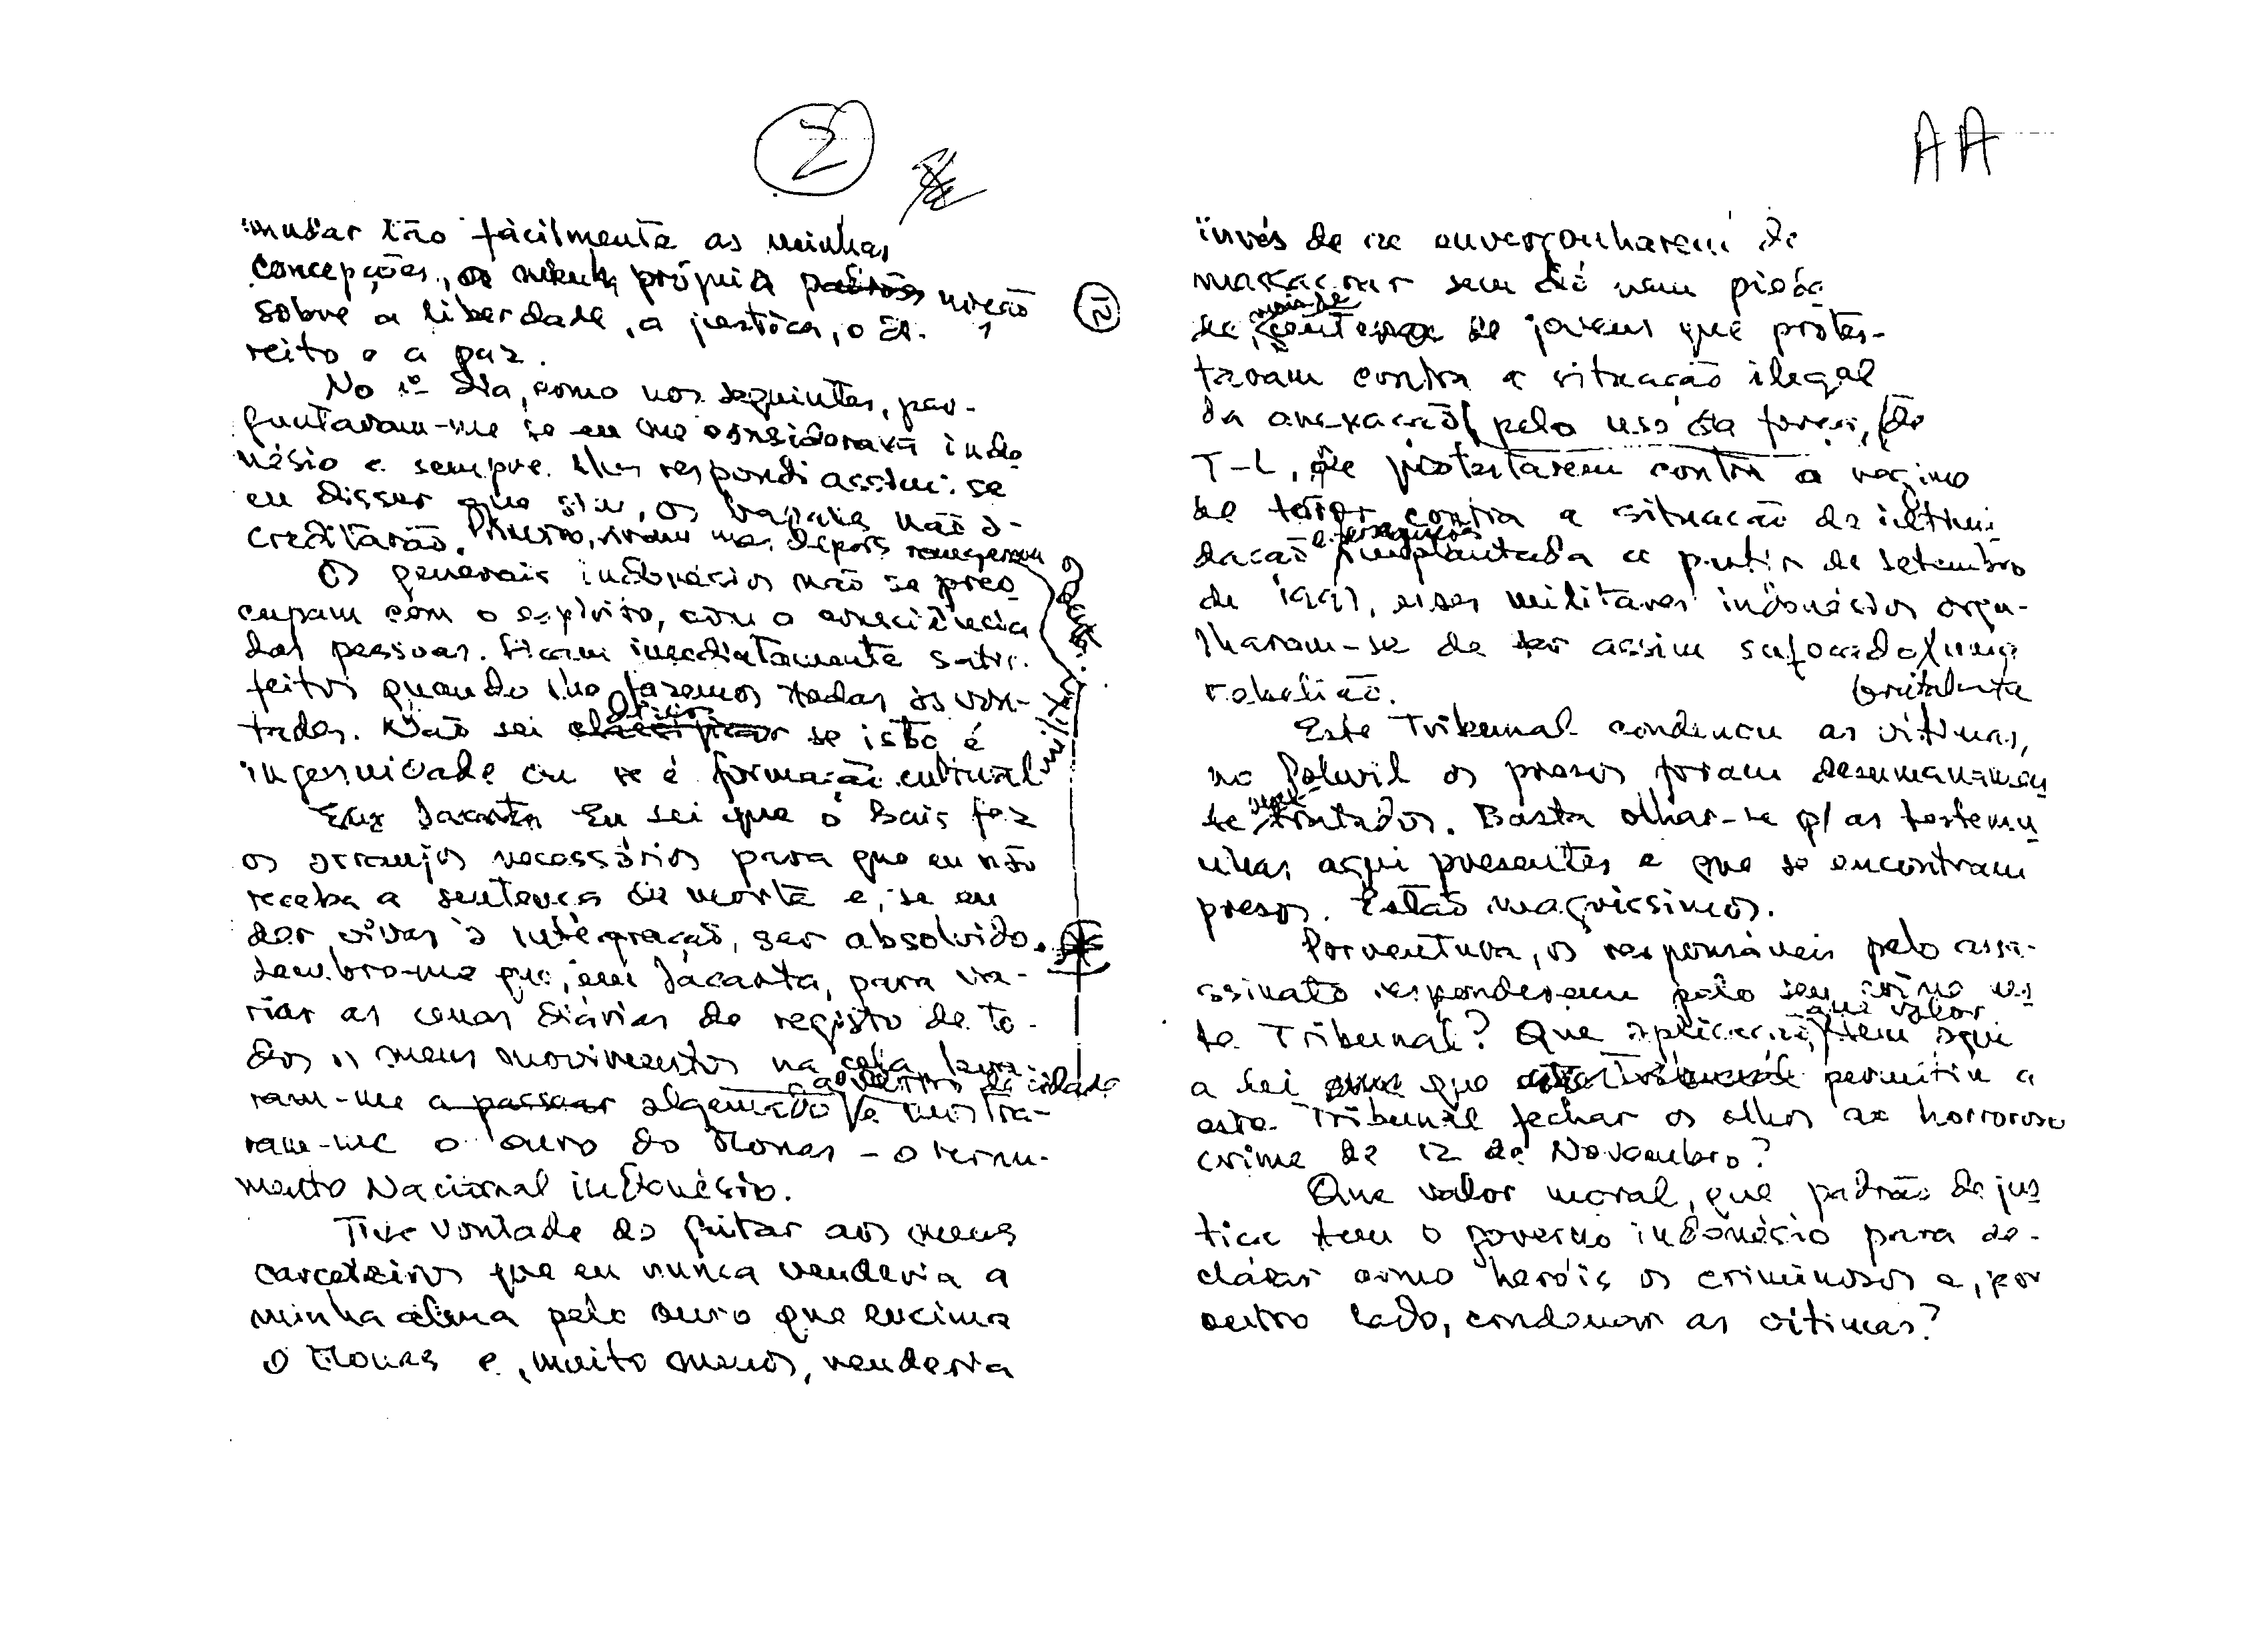 2
mudar tão fàcilmente as minhas
concepções, a minha própria visão
sobre a liberdade, a justiça, o di-
reito e a paz.
12
No 1º dia, como nos seguintes, per-
guntaram-me se eu me considerava indo
nésio e sempre lhes respondi assim: se
eu disser que sim, os rapazes não a-
creditarão. Primeiro, riram mas depois
Os generais indonésios não se preo
cupam com o espírito, com a consciência
das pessoas. Ficam imediatamente satis-
feitos quando lhe fazemos todas as von-
tades. Não sei se isto é
ingenuidade ou se é formação cultural
militar.
Em Jacarta Eu sei que o Bais fez
os arranjos necessários para que eu não
receba a sentença de morte e, se eu
der vivas à integração, ser absolvido.
Lembro-me que, em Jacarta, para va-
riar as cenas diárias de registo de to-
dos os meus movimentos na cela, leva-
ram-me a passear algemado e mostra-
da cidade
ram-me o ouro do Monas - o Monu-
mento Nacional indonésio.
Tive vontade de gritar aos meus
carcereiros que eu nunca venderia a
minha alma pelo ouro que encima
o Monas e, muito menos, venderia
AA
invés de se envergonharem de
massacrar sem dó nem pieda
de, centenas de jovens que protes-
mais de
tavam contra a situação ilegal
da anexação, pelo uso da força, de
T-L, de protestarem contra o regime
de terror contra a situação de intimi
dação implantada a partir de setembro
e perseguições
de 1991, esses militares indonésios orgu-
lharam-se de ter assim sufocado uma
brutalmente
rebelião.
Este Tribunal condenou as vítimas,
na Polwil os presos foram desumanamen
te tratados. Basta olhar-se p/ as testemu
nhas aqui presentes e que se encontram
presos. Estão magríssimos.
Porventura, os responsáveis pelo assa-
ssinato responderam pelo seu crime nes
te Tribunal? Que aplicação, tem aqui
que valor
a lei que permitiu a
este Tribunal fechar os olhos ao horroroso
crime de 12 de Novembro?
Que valor moral, que padrão de jus
tiça tem o governo indonésio para de-
clarar como heróis os criminosos e, por
outro lado, condenar as vítimas?